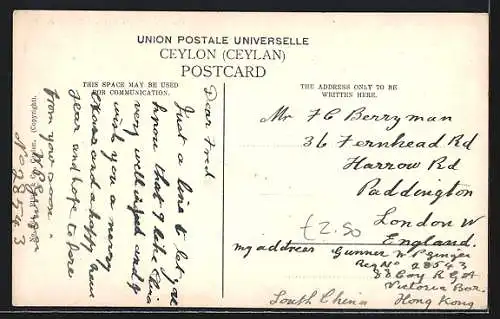 UNION POSTALE UNIVERSELLE
CEYLON (CEYLAN)
POSTCARD
THIS SPACE MAY BE USED
FOR COMMUNICATION.
THE ADDRESS ONLY TO BE
WRITTEN HERE.
Dear Fred
Just a line to let you
know that I like China
very well indeed and I
wish you a merry
Xmas and a happy new
year and hope to hear
from you soon
No 28543
Mr F C Berryman
36 Fernhead Rd
Harrow Rd
Paddington
London W
England.
£2.50
my address Gunner W P Ginger
Reg No 28543
88 Coy R G A
Victoria Bar.
South China Hong Kong